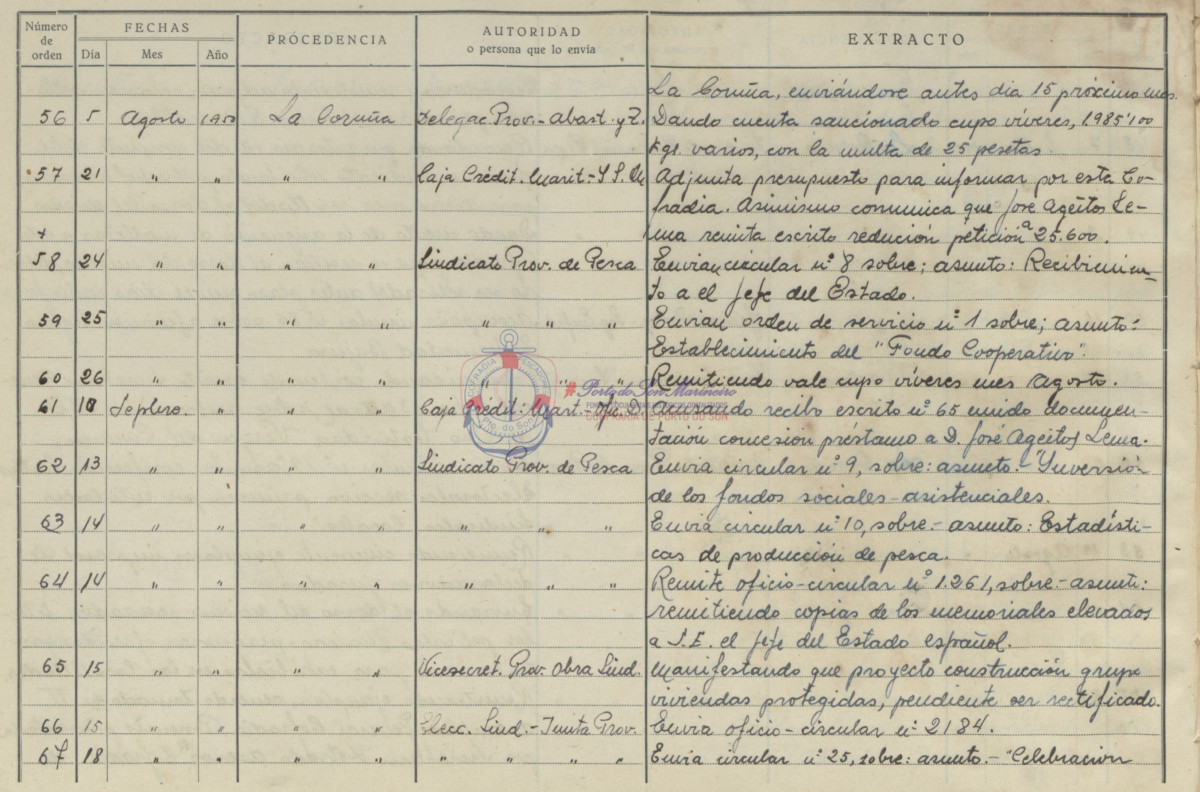 Número de orden FECHAS PROCEDENCIA AUTORIDAD o persona que lo envía EXTRACTO
Día Mes Año
La Coruña, enviándose antes dia 15 próximo mes.
56 5 Agosto 1950 La Coruña Delegac Prov.- Abast. y Z. Dando cuenta sancionado cupo víveres, 1985'100
kgs. varios, con la multa de 25 pesetas.
57 21 " " " " Caja Crédit. Marit.- Y S. M Adjunta presupuesto para informar por esta Co-
fradia. Asimismo comunica que José Ageitos Le-
ma remita escrito redución petición 25.600.
58 24 " " " " Sindicato Prov. de Pesca Envian circular nº 8 sobre; asunto: Recibimien-
to a el Jefe del Estado.
59 25 " " " " " " " Envian orden de servicio nº 1 sobre; asunto:
Establecimiento del "Fondo Cooperativo".
60 26 " " " " " " " Remitiendo vale cupo víveres mes Agosto.
61 10 Sepbre. " " " Caja Crédit: Marit.- Acusando recibo escrito nº 65 unido documen-
tación concesión préstamo a D. José Ageitos Lema.
62 13 " " " " Sindicato Prov. de Pesca Envia circular nº 9, sobre: asunto.- "Inversión
de los fondos sociales-asistenciales.
63 14 " " " " " " " Envia circular nº 10, sobre.- asunto: Estadísti-
cas de producción de pesca.
64 14 " " " " " " " Remite oficio-circular nº 1.261, sobre.- asunto:
remitiendo copias de los memoriales elevados
a S.E. el Jefe del Estado español.
65 15 " " " " Vicesecret. Prov. Obra Sind. Manifestando que proyecto construcción grupo
viviendas protegidas, pendiente ser rectificado.
66 15 " " " " Elecc. Sind.- Junta Prov. Envia oficio-circular nº 2184.
67 18 " " " " " " " " Envia circular nº 25, sobre: asunto.- "Celebración
COFRADIA PESCADORES
Pto. do Son
# Porto do Son Marineiro
CONFRARÍA DE PORTO DO SON